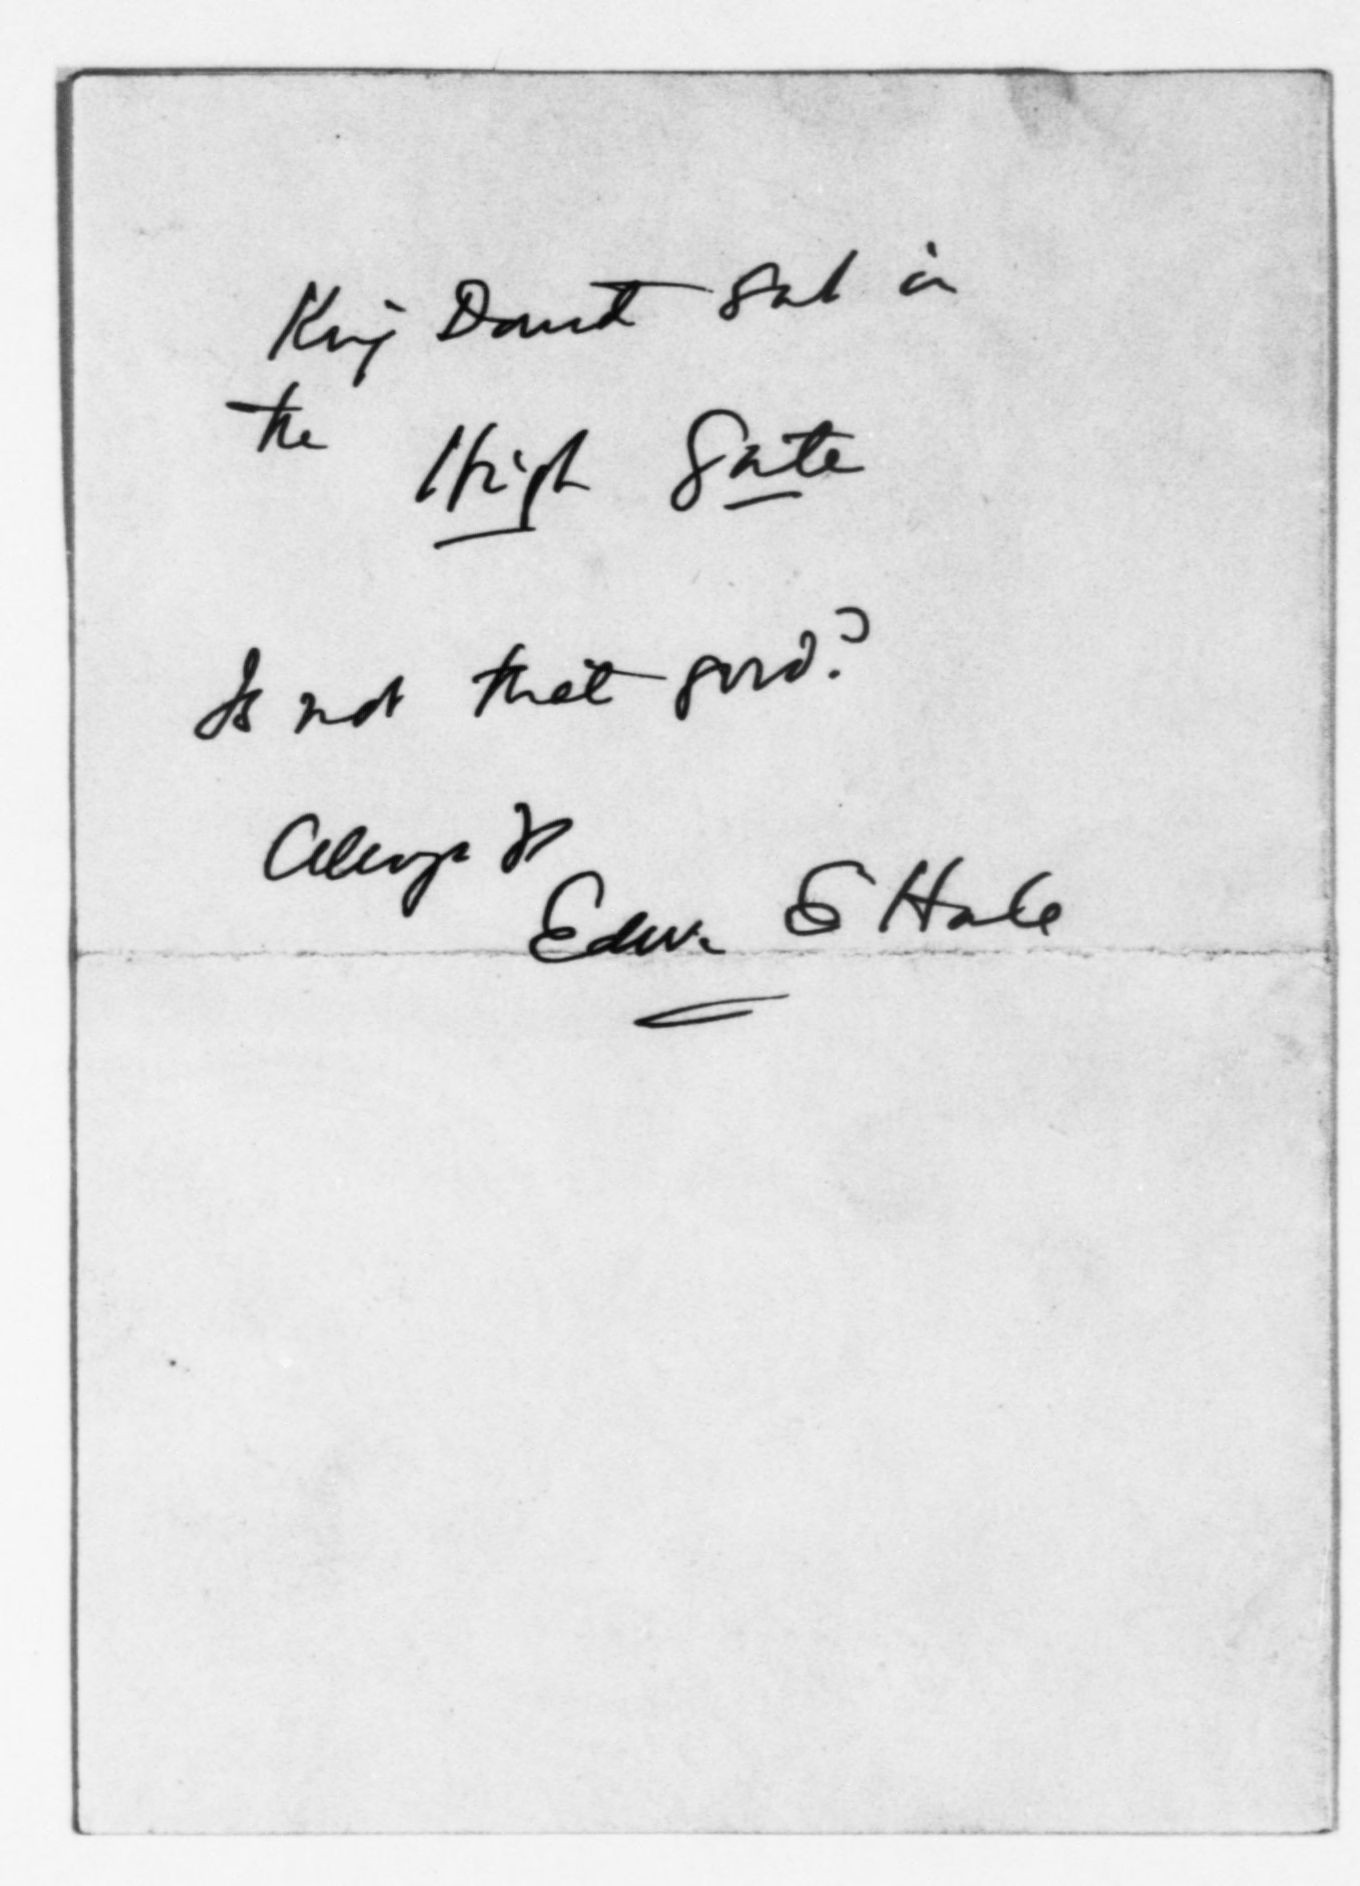 King David sat in
the High Gate
Is not that good?
Always Yr
Edw. E Hale